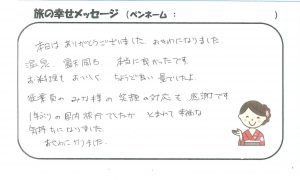 旅の幸せメッセージ（ペンネーム：　　　　　）
本日は ありがとうございました おせわになりました
温泉 露天風呂 本当に良かったです
お料理も おいしく ちょうど良い 量でしたよ
従業員の みな様の 笑顔の対応も 感謝です
1年ぶりの国内旅行でしたが とても 素敵な
気持ちになりました
おせわになりました。